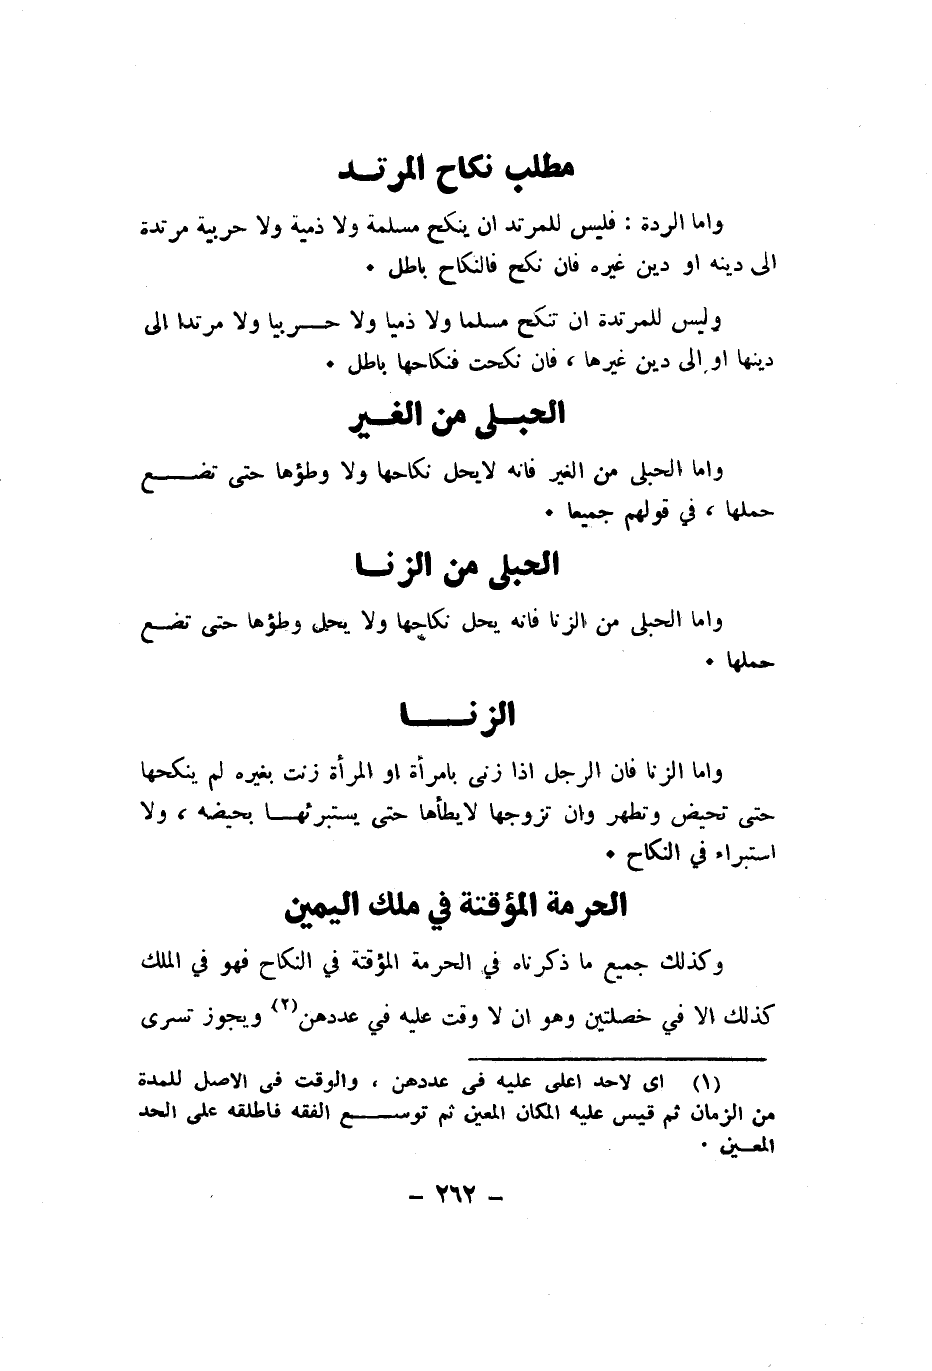 مطلب نكاح المرتد
واما الردة : فليس للمرتد ان ينكح مسلمة ولا ذمية ولا حربية مرتدة
الى دينه او دين غيره فان نكح فالنكاح باطل ٠
وليس للمرتدة ان تنكح مسلما ولا ذميا ولا حربيا ولا مرتدا الى
دينها او الى دين غيرها ، فان نكحت فنكاحها باطل ٠
الحبلى من الغير
واما الحبلى من الغير فانه لايحل نكاحها ولا وطؤها حتى تضع
حملها ، في قولهم جميعا ٠
الحبلى من الزنا
واما الحبلى من الزنا فانه يحل نكاحها ولا يحل وطؤها حتى تضع
حملها ٠
الزنا
واما الزنا فان الرجل اذا زنى بامرأة او المرأة زنت بغيره لم ينكحها
حتى تحيض وتطهر وان تزوجها لايطأها حتى يستبرئها بحيضه ، ولا
استبراء في النكاح ٠
الحرمة المؤقتة في ملك اليمين
وكذلك جميع ما ذكرناه في الحرمة المؤقتة في النكاح فهو في الملك
كذلك الا في خصلتين وهو ان لا وقت عليه في عددهن(٢) ويجوز تسرى
(١) اى لاحد اعلى عليه فى عددهن ، والوقت فى الاصل للمدة
من الزمان ثم قيس عليه المكان المعين ثم توسع الفقه فاطلقه على الحد
المعين ٠
– ٢٦٢ –